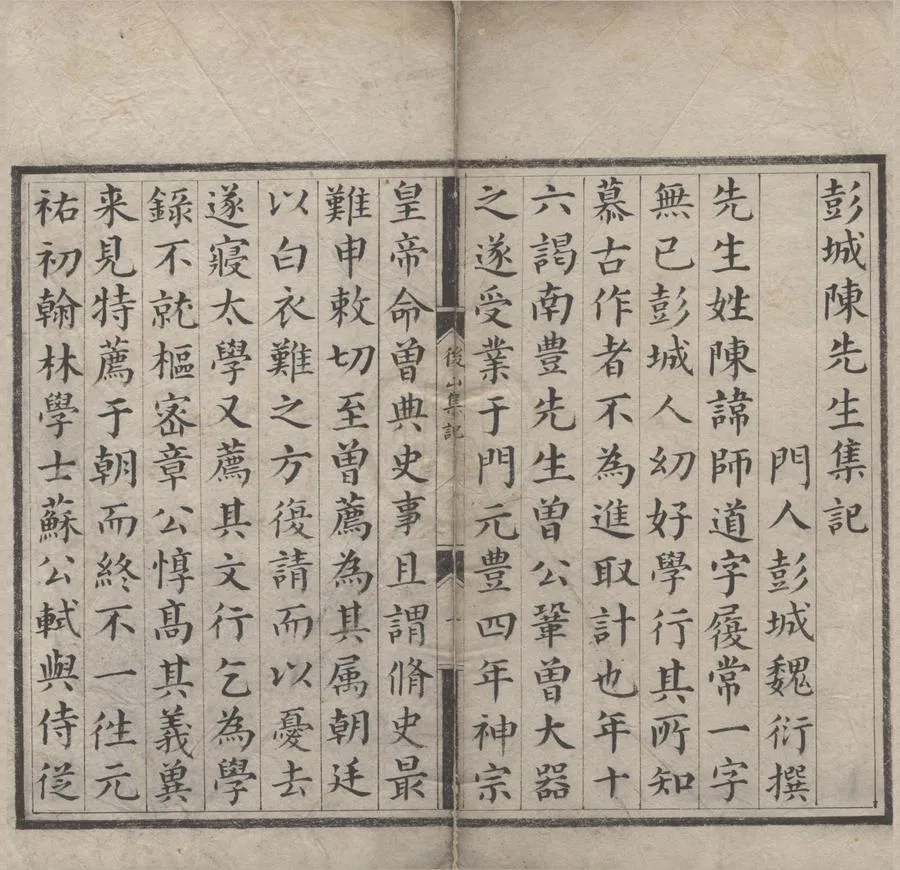 彭城陳先生集記
門人彭城魏衍撰
先生姓陳諱師道字履常一字
無已彭城人幼好學行其所知
慕古作者不為進取計也年十
六謁南豊先生曾公鞏曾大器
之遂受業于門元豊四年神宗
後山集記
一
皇帝命曾典史事且謂脩史最
難申敕切至曾薦為其属朝廷
以白衣難之方復請而以憂去
遂寢太學又薦其文行乞為學
錄不就樞宻章公惇髙其義兾
来見特薦于朝而終不一徃元
祐初翰林學士蘇公軾與侍従